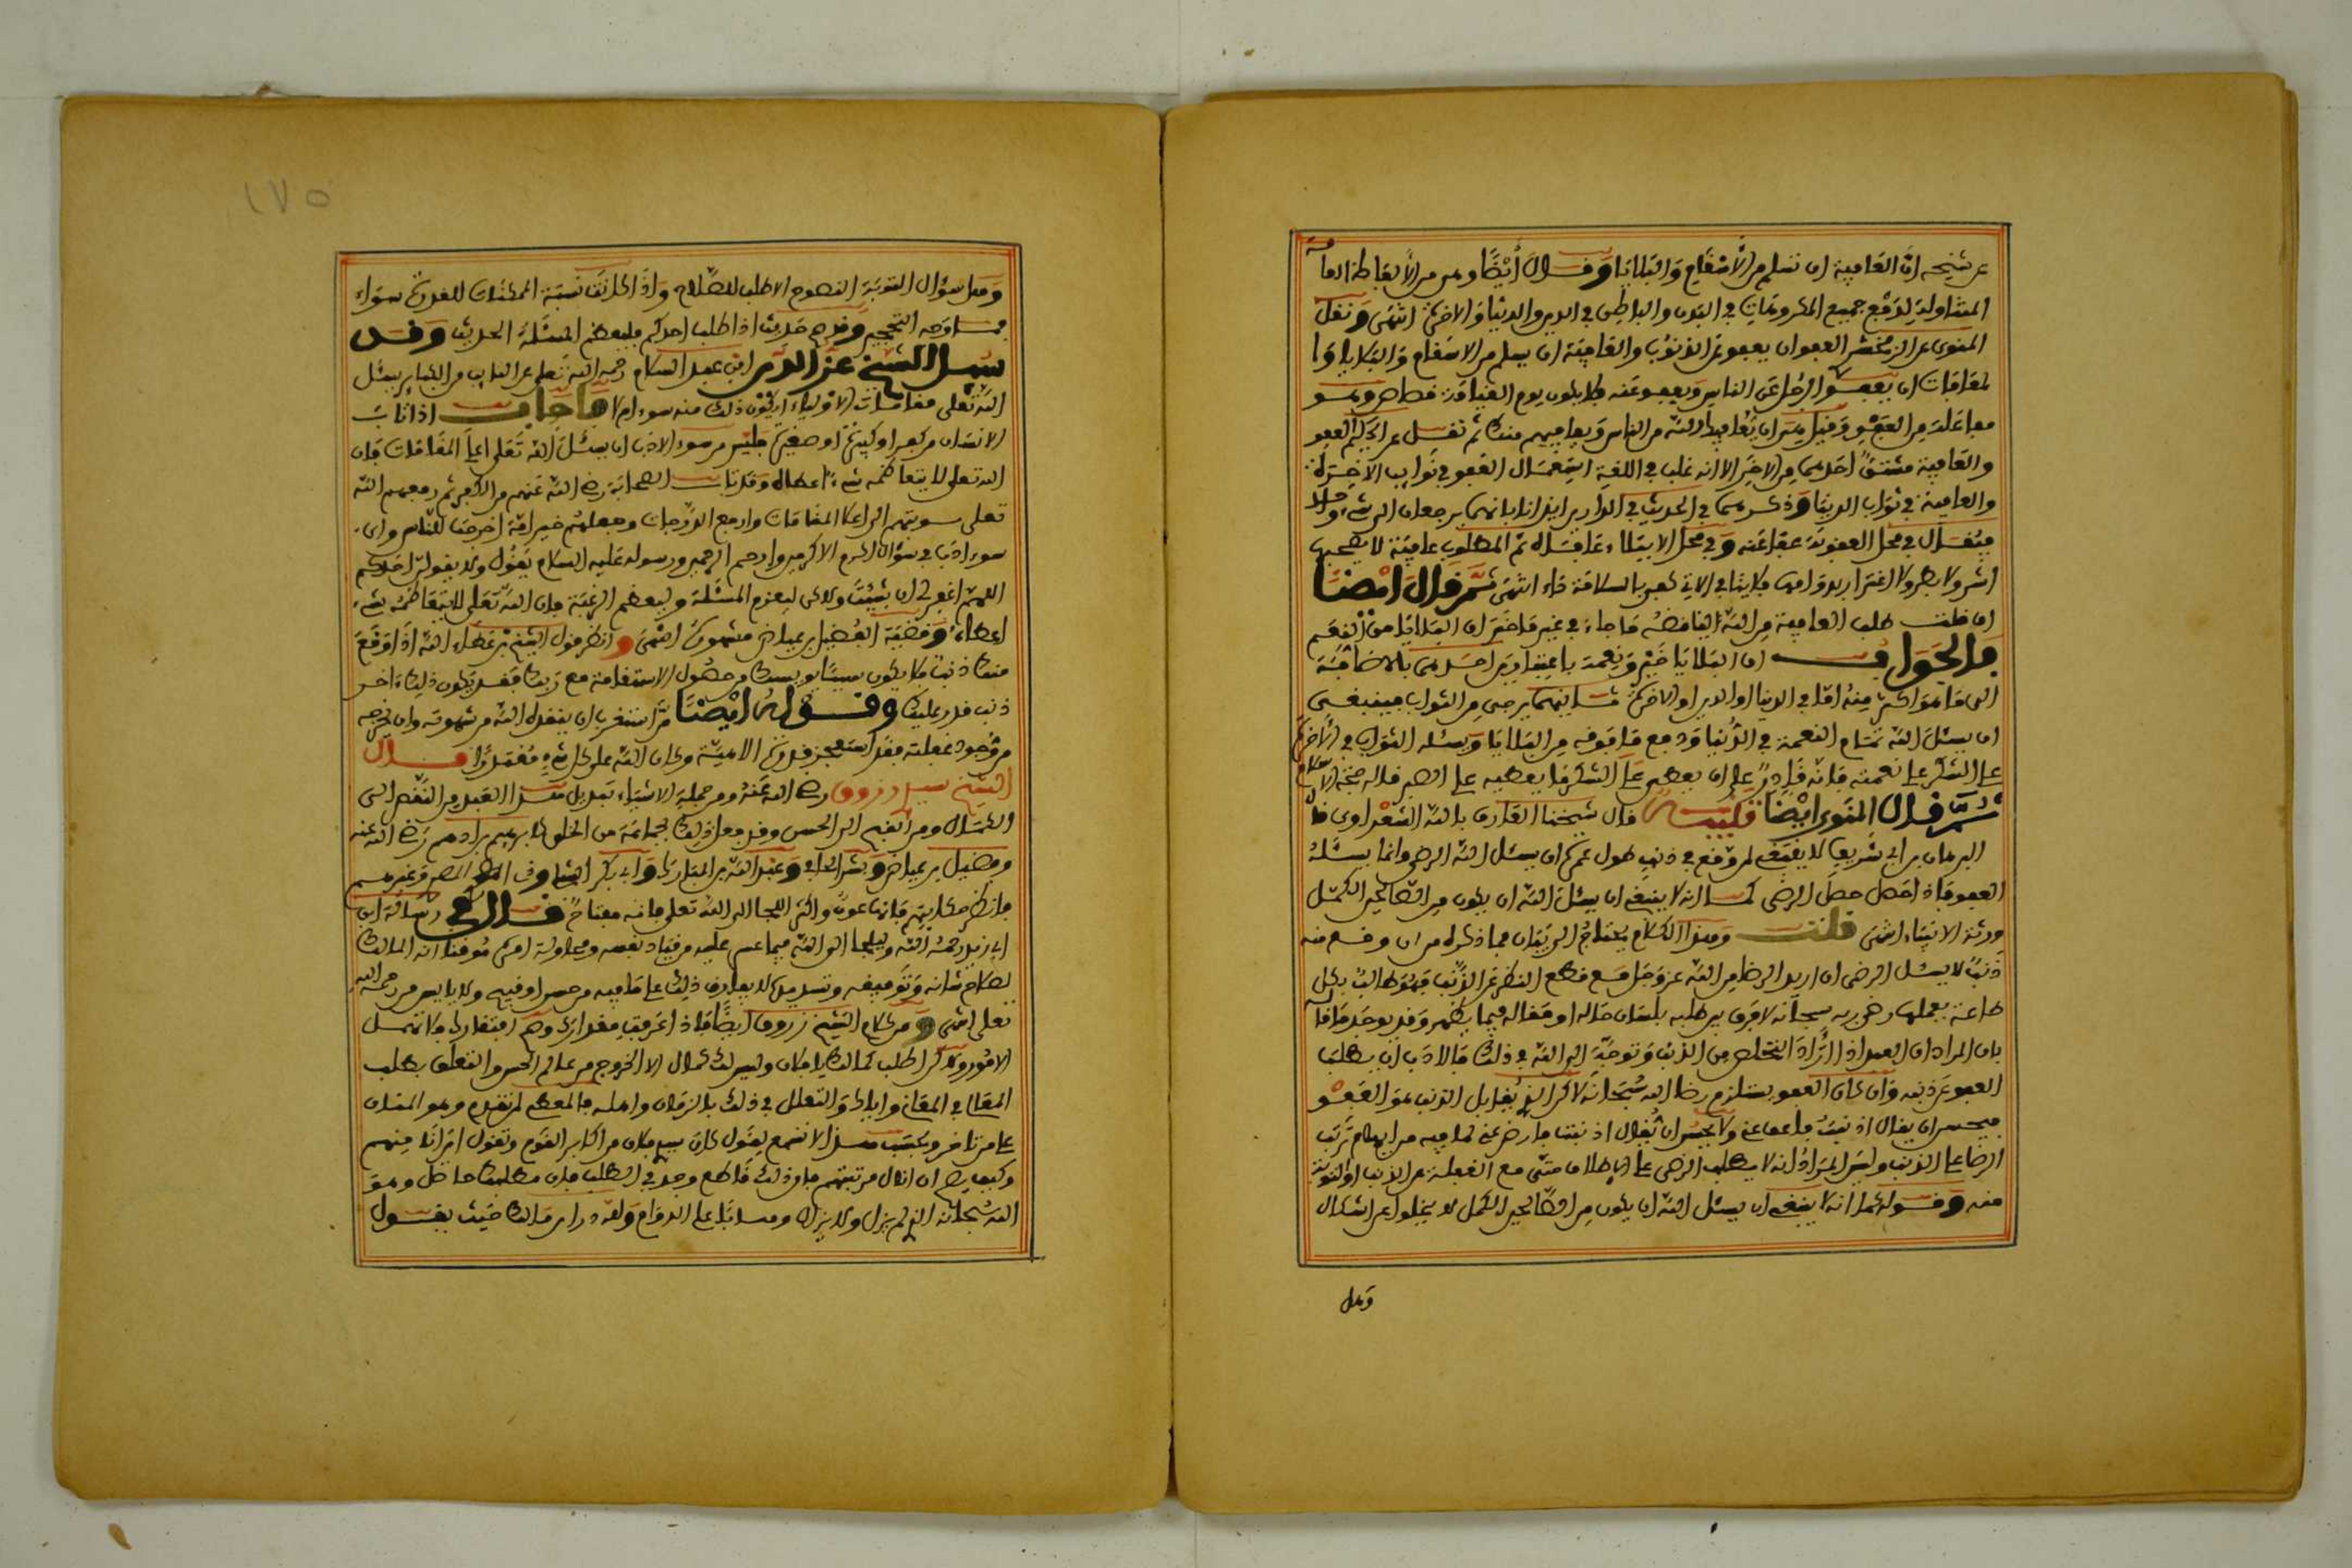 عن شيخه ان العافية ان تسلم من الأسقام والبلايا وقال أيضا وهى من الألفاظ العامة
المتناولة لدفع جميع المكروهات في البدن والباطن في الدين والدنيا والاخرة انتهى ونقل
المنوى عن الزمخشر العفو ان يعفو عن الذنوب والعافية ان يسلم من الاسقام والبلايا وا
لمعافات ان يعفو الرجل عن الناس ويعفو عنه فلا يكون يوم القيامة قصاص وهو
مفاعلة من العفو وقيل هى ان يعافيك الله من الناس ويعافيهم منك ثم نقل عن الحكيم العفو
والعافية مشتق احدهما من الاخر الا انه غلب في اللغة استعمال العفو في نوايب الاخرة
والعافية في نوايب الدنيا وذكرهما في الحديث في الدارين ايذانا بانهما يرجعان الى شيء واحد
فيقال في محل العقوبة عفا عنه وفي محل الابتلاء عافاه ثم المطلوب عافية لا يصحبها
اشر ولا بطر ولا اغترار بدوامها فلا ينافي الاتي كفى بالسلامة داء انتهى ثم قال ايضا
ان قلت طلب العافية من الله يناقضه ما جاء في غير ما خبر ان البلايا من النعم
فالجواب ان البلايا خير ونعمة باعتبارين احدهما بالاضافة
الى ما هو اكثر منه اما في الدنيا او الدين او الاخرة بما يرجى من الثواب فينبغى
ان يسئل الله تمام النعمة في الدنيا ودفع ما فوقه من البلايا ويسئله الثواب في الأخرة
على الشكر على نعمته فانه قادر على ان يعطى على الشكر ما يعطيه على الصبر قاله حجة الاسلام
ثم قال المنوى ايضا تنبيه قال شيخنا العارف بالله الشعراوى قال
البرهان بن ابي شريف لا ينبغى لمن وقع في ذنب طول عمره ان يسئل الله الرضى وانما يسئله
العفو فاذا حصل حصل الرضى كما انه لا ينبغى ان يسئل الله ان يكون من الصالحين الكمل
ورثة الانبياء انتهى قلت وهذا الكلام يحتاج الى بيان فما ذكره من ان وقع منه
ذنب لا يسئل الرضى ان اريد الرضا من الله عز وجل مع قطع النظر عن الذنب فهو طالب بكل
طاعة يعملها رضى ربه سبحانه لا فرق بين طلبه بلسان حاله او مقاله فيما يظهر وقد يوجد ما قاله
بان المراد ان العبد اذا اراد التخلص من الذنب وتوجه الى الله في ذلك فالادب ان يطلب
العفو عن ذنبه وان كان العفو يستلزم رضا الله سبحانه لاكن الذي يقابل الذنب هو العفو
فيحسن ان يقال اذنبت فاعف عنى ولا يحسن ان يقال اذنبت فارض عنى لما فيه من ايهام ترتب
الرضا على الذنب وليس المراد انه لا يطلب الرضى على الاطلاق حتى مع الغفلة عن الذنب او التوبة
منه وقوله كما انه لا ينبغى ان يسئل الله ان يكون من الصالحين الكمل لا يخلوا عن اشكال
وهل
١٧٥
وهل سؤال التوبة النصوح الا طلب للصلاح واذا كانت نسبة الممكنات للقدرة سواء
فما وجه التحجير وفي حديث اذا طلب احدكم فليعظم المسئلة الحديث وقد
سئل الشيخ عز الدين ابن عبد السلام رحمه الله تعلى عن التايب من الكباير يسئل
الله تعلى مقامات الاولياء ايكون ذلك منه سوء ام لا فاجاب اذا تاب
الانسان من كفر او كبيرة او صغيرة فليس من سوء الادب ان يسئل الله تعلى اعلى المقامات فان
الله تعلى لا يتعاظمه شيء اعطاه وقد تاب الصحابة رضي الله عنهم من الكفر ثم رفعهم الله
تعلى بتوبتهم الى اعلا المقامات وارفع الدرجات وجعلهم خير امة اخرجت للناس واى
سوء ادب في سؤال اكرم الاكرمين وارحم الرحمين ورسوله عليه السلام يقول ولا يقولن احدكم
اللهم اغفر لى ان شئت ولاكن ليعزم المسئلة وليعظم الرغبة فان الله تعلى لا يتعاظمه شيء
اعطاه وقضية الفضيل بن عياض مشهورة انتهى وانظر قول الشيخ بن عطاء الله اذا وقع
منك ذنب فلا يكون سببا يويسك من حصول الاستقامة مع ربك فقد يكون ذلك اخر
ذنب قدر عليك وقوله ايضا من استغرب ان ينقذه الله من شهوته وان يخرجه
من وجود غفلته فقد استعجز قدرة الالهية وكان الله على كل شيء مقتدرا قال
الشيخ سيد زروق رضي الله عنه ومن جملة الاشياء تبديل هذا العبد من النقص الى
الكمال ومن القبح الى الحسن وقد فعل ذلك بجماعة من الخلق كابرهيم بن ادهم رضي الله عنه
وفضيل بن عياض وبشر الحافي وعبد الله بن المبارك وابي بكر الشبلى وذى النون المصرى وغيرهم
فانظر حكايتهم فانها عون والى الله تعلى فانه مفتاح قال في رسالة ابن
ابي زيد رحمه الله وليلجا الى الله فيما عسر عليه من قياد نفسه ومحاولة امره موقنا انه المالك
لصلاح شانه وتوفيقه وتسديده لا يفارق ذلك على ما فيه من حسن او قبيح ولا يايس من رحمة الله
تعلى انتهى ومن كلام الشيخ زروق ايضا فاذا عرفت مقدارك وهم افتقارك فلا تهمل
الامور ولاكن اطلب كمالك بالامكان وليس لك كمال الا الخروج من عالم الحس والتعلق بطلب
المقام في المعاني واياك والتعلل في ذلك بالزمان واهله فالمعطى لمن تقدم وهو المنان
على من تاخر وبحسب هذا لا تسمع لقول كان سيد فلان من اكابر القوم وتقول اين انا منهم
وكيف يصح ان انال مرتبتهم فان ذلك قاطع وجد في الطلب فان مطلبك حاصل وهو
الله سبحانه الذي لم يزل ولا يزال وهابا على الدوام ولله در ابن مالك حيث يقول